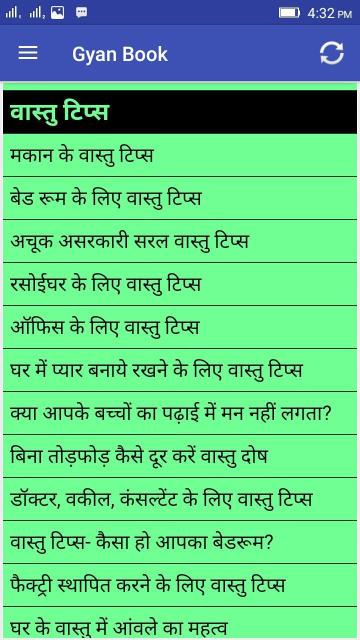 4:32 PM
Gyan Book
वास्तु टिप्स
मकान के वास्तु टिप्स
बेड रूम के लिए वास्तु टिप्स
अचूक असरकारी सरल वास्तु टिप्स
रसोईघर के लिए वास्तु टिप्स
ऑफिस के लिए वास्तु टिप्स
घर में प्यार बनाये रखने के लिए वास्तु टिप्स
क्या आपके बच्चों का पढ़ाई में मन नहीं लगता?
बिना तोड़फोड़ कैसे दूर करें वास्तु दोष
डॉक्टर, वकील, कंसल्टेंट के लिए वास्तु टिप्स
वास्तु टिप्स- कैसा हो आपका बेडरूम?
फैक्ट्री स्थापित करने के लिए वास्तु टिप्स
घर के वास्तु में आंवले का महत्व